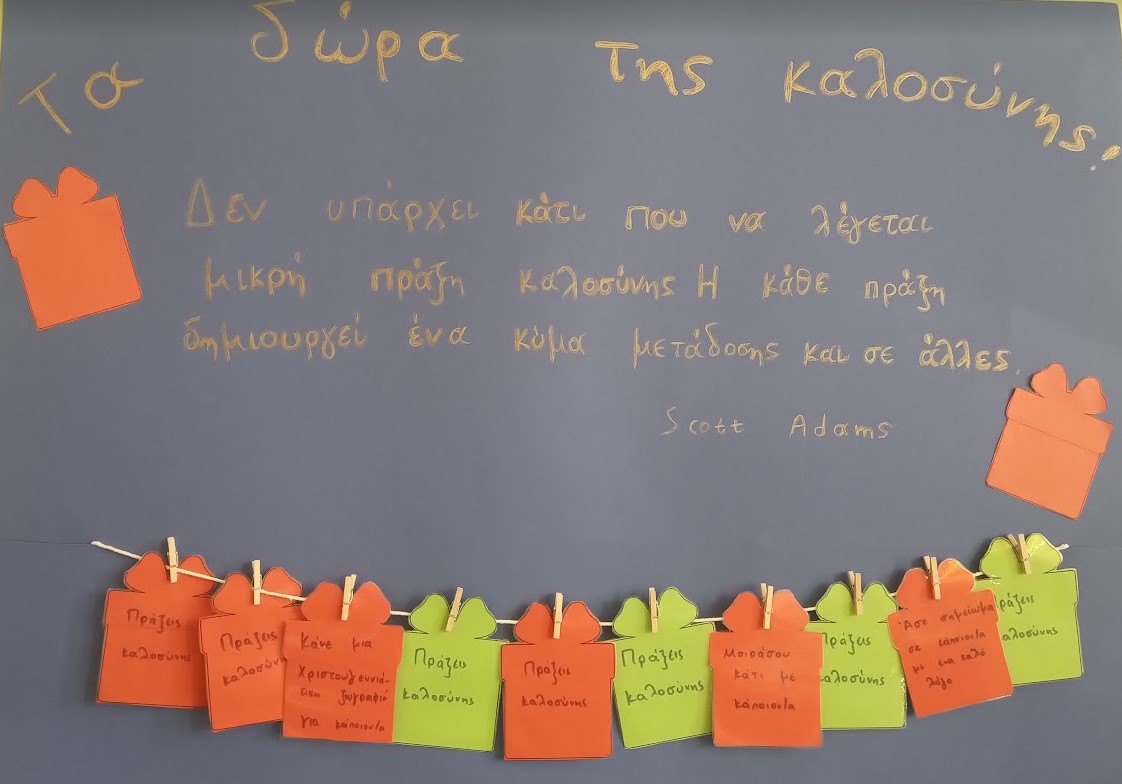 Τα δώρα της καλοσύνης!
Δεν υπάρχει κάτι που να λέγεται
μικρή πράξη καλοσύνης Η κάθε πράξη
δημιουργεί ένα κύμα μετάδοσης και σε άλλες.
Scott Adams
Πράξεις
καλοσύνης
Πράξεις
καλοσύνη
Κάνε μια
Χριστουγεννιά-
τικη ζωγραφιά
για κάποιον/α
Πράξεις
καλοσύνης
Πράξεις
καλοσύνης
Πράξεις
καλοσύνης
Μοιράσου
κάτι με
κάποιον/α
Πράξεις
καλοσύνης
Άσε σημείωμα
σε κάποιον/α
με ένα καλό
λόγο
ράξεις
αλοσύνης